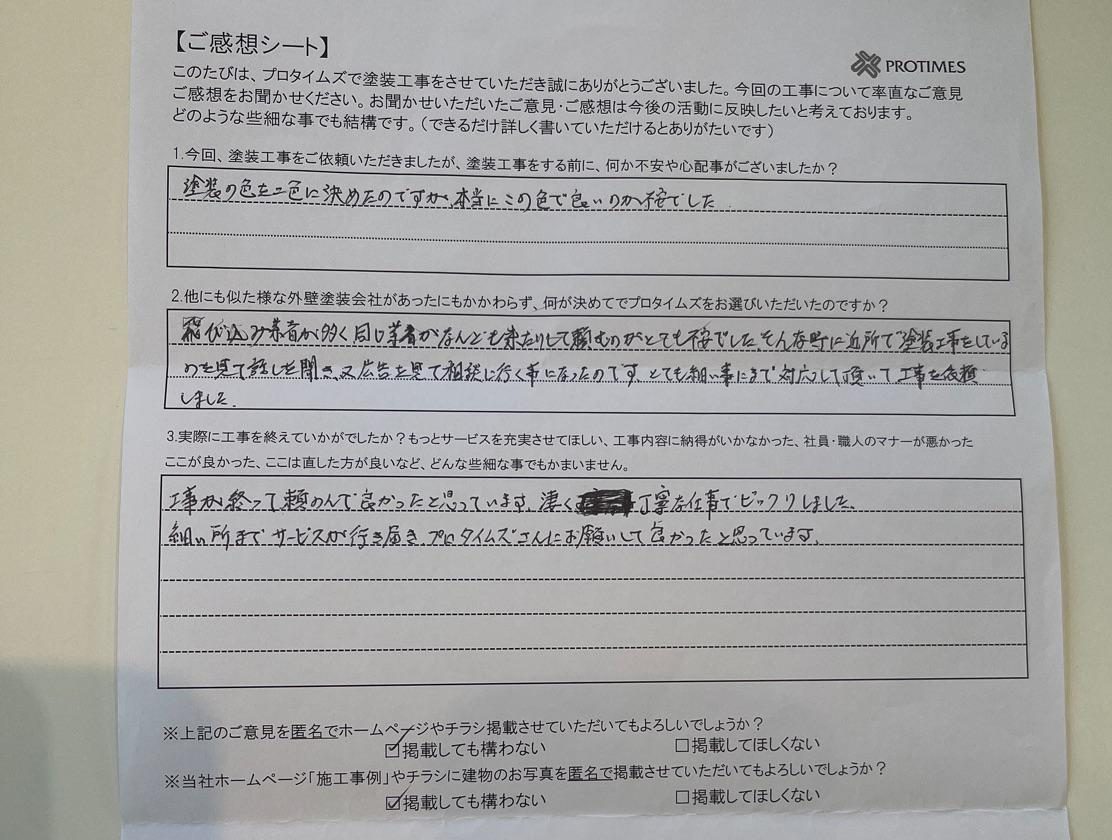 【ご感想シート】
PROTIMES
このたびは、プロタイムズで塗装工事をさせていただき誠にありがとうございました。今回の工事について率直なご意見
ご感想をお聞かせください。お聞かせいただいたご意見・ご感想は今後の活動に反映したいと考えております。
どのような些細な事でも結構です。（できるだけ詳しく書いていただけるとありがたいです）
1.今回、塗装工事をご依頼いただきましたが、塗装工事をする前に、何か不安や心配事がございましたか？
塗装の色を二色に決めたのですが、本当にこの色で良いのか不安でした
2.他にも似た様な外壁塗装会社があったにもかかわらず、何が決めてでプロタイムズをお選びいただいたのですか？
飛び込み業者が多く同じ業者がなんども来たりして頼むのがとても不安でした。そんな時に近所で塗装工事をしている
のを見て話しを聞き、又広告を見て相談に行く事になったのです。とても細い事にまで対応して頂いて工事を依頼
しました。
3.実際に工事を終えていかがでしたか？もっとサービスを充実させてほしい、工事内容に納得がいかなかった、社員・職人のマナーが悪かった
ここが良かった、ここは直した方が良いなど、どんな些細な事でもかまいません。
工事が終って頼のんで良かったと思っています。凄く丁寧な仕事でビックリしました。
細い所までサービスが行き届き、プロタイムズさんにお願いして良かったと思っています。
※上記のご意見を匿名でホームページやチラシ掲載させていただいてもよろしいでしょうか？
☑掲載しても構わない　☐掲載してほしくない
※当社ホームページ「施工事例」やチラシに建物のお写真を匿名で掲載させていただいてもよろしいでしょうか？
☑掲載しても構わない　☐掲載してほしくない